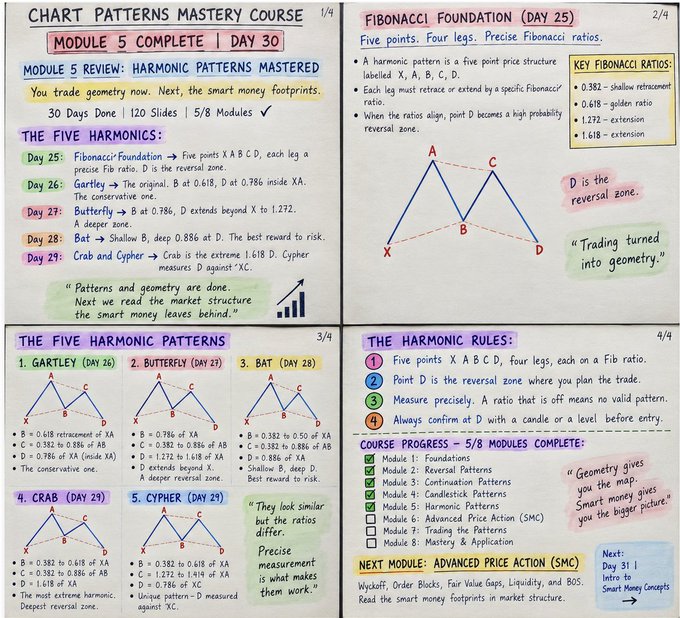 CHART PATTERNS MASTERY COURSE
1/4
MODULE 5 COMPLETE | DAY 30
MODULE 5 REVIEW: HARMONIC PATTERNS MASTERED
You trade geometry now. Next, the smart money footprints.
30 Days Done | 120 Slides | 5/8 Modules ✓
THE FIVE HARMONICS:
Day 25: Fibonacci Foundation → Five points X A B C D, each leg a
precise Fib ratio. D is the reversal zone.
Day 26: Gartley → The original. B at 0.618, D at 0.786 inside XA.
The conservative one.
Day 27: Butterfly → B at 0.786, D extends beyond X to 1.272.
A deeper zone.
Day 28: Bat → Shallow B, deep 0.886 at D. The best reward to risk.
Day 29: Crab and Cypher → Crab is the extreme 1.618 D. Cypher
measures D against XC.
"Patterns and geometry are done.
Next we read the market structure
the smart money leaves behind."
2/4
FIBONACCI FOUNDATION (DAY 25)
Five points. Four legs. Precise Fibonacci ratios.
• A harmonic pattern is a five point price structure
labelled X, A, B, C, D.
• Each leg must retrace or extend by a specific Fibonacci
ratio.
• When the ratios align, point D becomes a high probability
reversal zone.
KEY FIBONACCI RATIOS:
• 0.382 – shallow retracement
• 0.618 – golden ratio
• 1.272 – extension
• 1.618 – extension
A
C
B
X
D
D is the
reversal zone.
"Trading turned
into geometry."
THE FIVE HARMONIC PATTERNS
3/4
1. GARTLEY (DAY 26)
A
C
B
X
D
• B = 0.618 retracement of XA
• C = 0.382 to 0.886 of AB
• D = 0.786 of XA (inside XA)
• The conservative one.
2. BUTTERFLY (DAY 27)
A
C
B
X
D
• B = 0.786 of XA
• C = 0.382 to 0.886 of AB
• D = 1.272 to 1.618 of XA
• D extends beyond X.
A deeper reversal zone.
3. BAT (DAY 28)
A
C
B
X
D
• B = 0.382 to 0.50 of XA
• C = 0.382 to 0.886 of AB
• D = 0.886 of XA
• Shallow B, deep D.
Best reward to risk.
4. CRAB (DAY 29)
A
C
B
X
D
• B = 0.382 to 0.618 of XA
• C = 0.382 to 0.886 of AB
• D = 1.618 of XA
• The most extreme harmonic.
Deepest reversal zone.
5. CYPHER (DAY 29)
A
C
B
X
D
• B = 0.382 to 0.618 of XA
• C = 1.272 to 1.414 of XA
• D = 0.786 of XC
• Unique pattern – D measured
against XC.
"They look similar
but the ratios
differ.
Precise
measurement
is what makes
them work."
4/4
THE HARMONIC RULES:
1 Five points X A B C D, four legs, each on a Fib ratio.
2 Point D is the reversal zone where you plan the trade.
3 Measure precisely. A ratio that is off means no valid pattern.
4 Always confirm at D with a candle or a level before entry.
COURSE PROGRESS – 5/8 MODULES COMPLETE:
Module 1: Foundations
Module 2: Reversal Patterns
Module 3: Continuation Patterns
Module 4: Candlestick Patterns
Module 5: Harmonic Patterns
Module 6: Advanced Price Action (SMC)
Module 7: Trading the Patterns
Module 8: Mastery & Application
"Geometry gives
you the map.
Smart money gives
you the bigger picture."
NEXT MODULE: ADVANCED PRICE ACTION (SMC)
Wyckoff, Order Blocks, Fair Value Gaps, Liquidity, and BOS.
Read the smart money footprints in market structure.
Next:
Day 31 |
Intro to
Smart Money Concepts
→